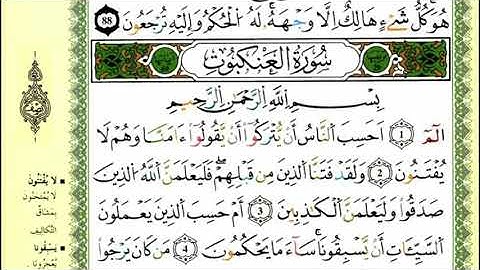 هُوَ كُلُّ شَيْءٍ هَالِكٌ إِلَّا وَجْهَهُ لَهُ الْحُكْمُ وَإِلَيْهِ تُرْجَعُونَ 88
سُورَةُ العَنْكَبُوتِ
بِسْمِ اللَّهِ الرَّحْمَٰنِ الرَّحِيمِ
الٓمٓ 1 أَحَسِبَ النَّاسُ أَنْ يُتْرَكُوا أَنْ يَقُولُوا ءَامَنَّا وَهُمْ لَا
يُفْتَنُونَ 2 وَلَقَدْ فَتَنَّا الَّذِينَ مِن قَبْلِهِمْ فَلَيَعْلَمَنَّ اللَّهُ الَّذِينَ
صَدَقُوا وَلَيَعْلَمَنَّ الْكَاذِبِينَ 3 أَمْ حَسِبَ الَّذِينَ يَعْمَلُونَ
السَّيِّئَاتِ أَن يَسْبِقُونَا سَاءَ مَا يَحْكُمُونَ 4 مَن كَانَ يَرْجُوا
نصف
لا يُفْتَنُونَ
لا يُمْتَحَنُونَ
بِمَشَاقِّ
التَّكَالِيفِ
يَسْبِقُونَا
يُعْجِزُونَا